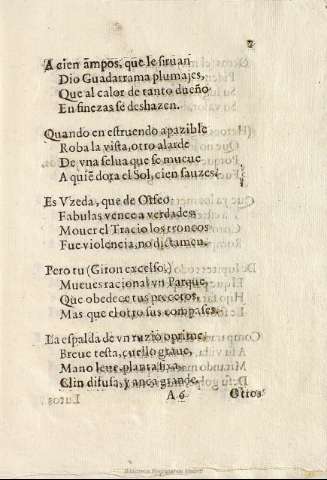 A cien ãmpos, que le siruan
Dio Guadarrama plumajes,
Que al calor de tanto dueño
En finezas se deshazen.
Quando en estruendo apazible
Roba la vista, otro alarde
De vna selua que se mueue
A quiẽ dora el Sol, cien sauzes.
Es Vzeda, que de Orfeo
Fabulas vence a verdades
Mouer el Tracio los troncos
Fue violencia, no dictamen.
Pero tu (Giron excelso,)
Mueues racional vn Parque,
Que obedece tus precetos,
Mas que el otro sus compases.
La espalda de vn ruzio oprime,
Breue testa, cuello graue,
Mano leue, planta fixa,
Clin difusa, y anca grande.
A 6 Otros
Biblioteca Regional de Madrid